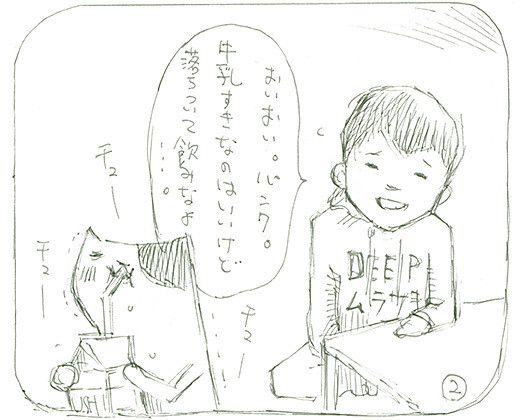 おいおい。パンク。
牛乳すきなのはいいけど
落ちついて飲みなよ
……。
チュー
チュー
チュー
DEEP
ムラサキ
USH
②